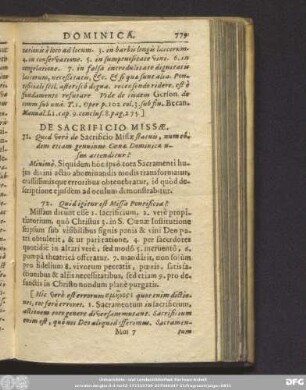 DOMINICA. 779
tationis è loco ad locum. 3. in barbis longis laicorum.
4. in conservatione. 5. in sumptuositate vini. 6. in
expletione. 7. in falsa incredulitate dignitatis
laicorum, necessitatis, &c. & si quæ sunt aliæ. Pon-
tificiis scil. asterisco digna. recensendo ridere, est è
fundamento refutare. Vide de istis Gerson, de
comm. sub una T. 1. Oper. p. 102. vel 3. sub fin. Becan.
Manual. l. 1. cap. 9. conclus. 8. pag. 273.]
DE SACRIFICIO MISSÆ.
71. Quid verò de Sacrificio Missæ statuis, num eo-
dem etiam genuinus Cœnæ Dominicæ u-
sus attenditur?
Minimè. Si quidem hoc ipso tota Sacramenti hu-
jus divini actio abominandis modis transformatur,
crassissimisque erroribus obtenebratur, id quod
descriptione ejusdem ad oculum demonstrabitur.
72. Quid igitur est Missa Pontificia?
Missam dicunt esse 1. sacrificium, 2. verè propi-
tiatorium, quo Christus 3. in S. Cœnæ Institutione
seipsum sub visibilibus signis panis & vini Deo Pa-
tri obtulerit, & ut particatione, 4. per sacerdotes
quotidie in altari verè, sed modo 5. incruento, 6.
pompâ theatricâ offeratur, 7. mandârit, non solùm
pro fidelium 8. vivorum peccatis, pœnis, satisfa-
ctionibus & aliis necessitatibus, sed etiam 9. pro de-
functis in Christo nondum planè purgatis.
[Hic verò est errorum quot enim dictio-
nes, tot ferè errores. 1. Sacramentum in sacrificium,
actionem toto genere diversam mutant. Sacrificium
enim est, quo nos Deo aliquid offerimus. Sacramen-
Mm 7 tum